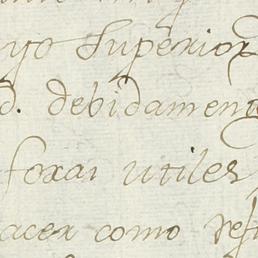 yo Superior
d. debidamen
foxai utiles
acer como